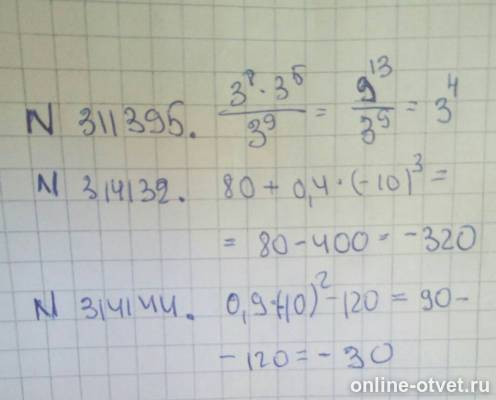 N 311395. 3⁸·3⁵/3⁹ = 9¹³/3⁹ = 3⁴
N 314132. 80 + 0,4·(-10)³ =
= 80-400 = -320
N 314144. 0,9·(-10)²-120 = 90-
-120 = -30
online-otvet.ru